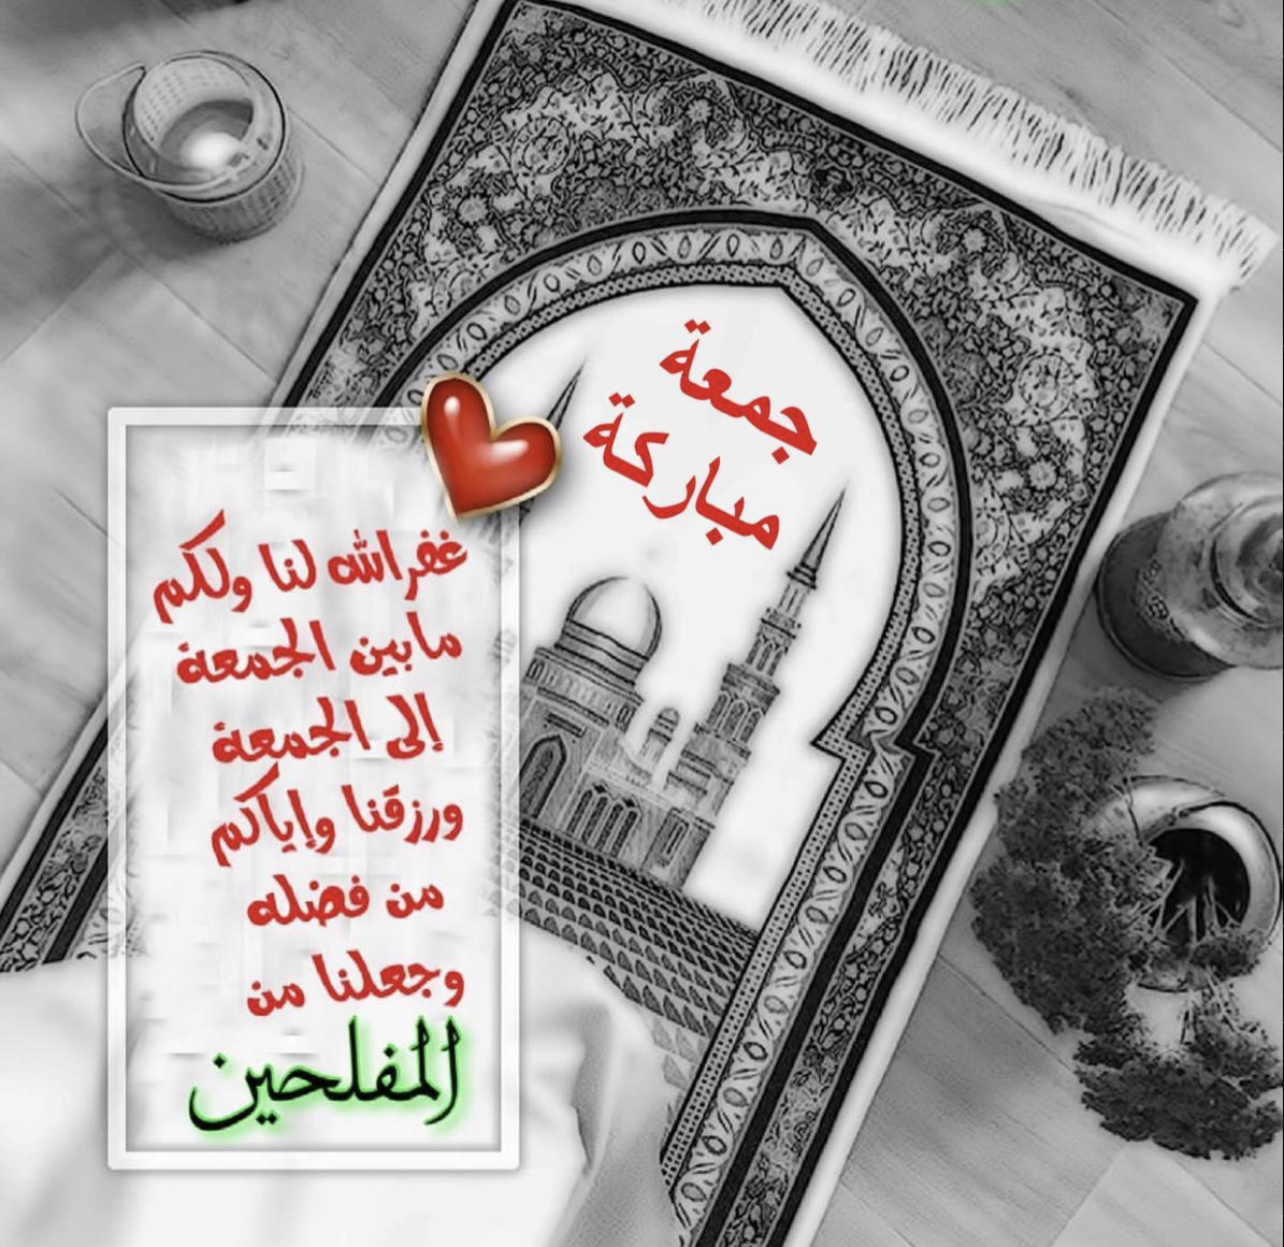 جمعة
مباركة
غفر الله لنا ولكم
ما بين الجمعة
إلى الجمعة
ورزقنا وإياكم
من فضله
وجعلنا من
المفلحين